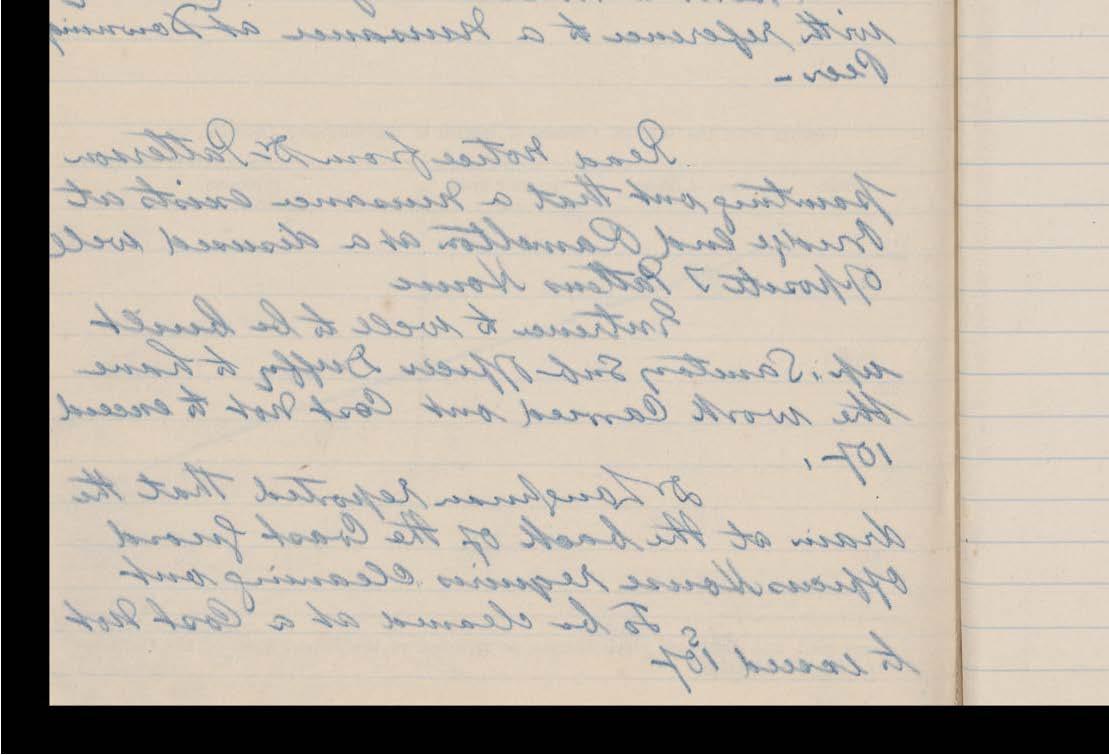 with reference to a nuisance at Downing
Peer -
Read notice from Dr. Patterson
pointing out that a nuisance exists at
Bridge End Ramelton at a disused well
opposite J Pattens House
Entrance to well to be built
up. Sanitary Sub Officer Duffy to have
the work carried out Cost not to exceed
10/-.
Dr reported that the
drain at the back of the Coast guard
Officers House requires cleaning out
To be cleaned at a Cost not
to exceed 10s/-